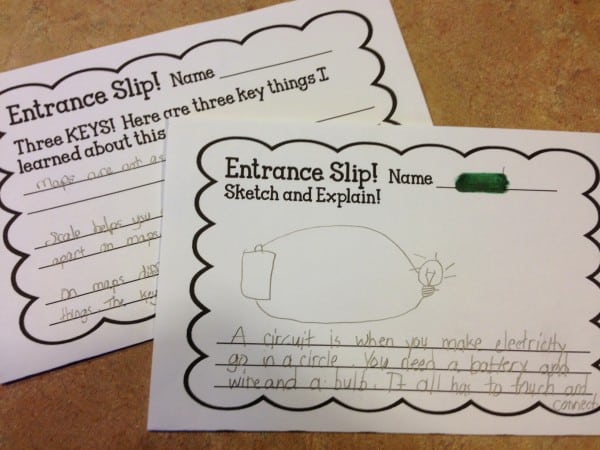 Entrance Slip! Name
Three KEYS! Here are three key things I
learned about this
Maps are not as
Scale helps you
apart on maps
On maps
things. The key
Entrance Slip! Name
Sketch and Explain!
A circuit is when you make electricity
go in a circle. You need a battery and
wire and a bulb. It all has to touch and
connect